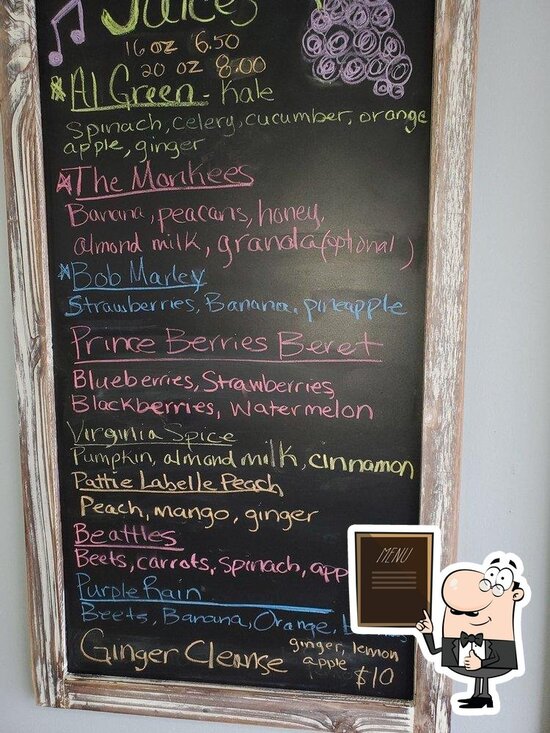 Juices
16 oz 6.50
20 oz 8.00
Al Green - Kale
Spinach, celery, cucumber, orange
apple, ginger
The Monkees
Banana, peacans, honey,
almond milk, granola (optional)
Bob Marley
Strawberries, Banana, pineapple
Prince Berries Beret
Blueberries, Strawberries
Blackberries, Watermelon
Virginia Spice
Pumpkin, almond milk, cinnamon
Pattie Labelle Peach
Peach, mango, ginger
Beattles
Beets, carrots, Spinach, app
Purple Rain
Beets, Banana, Orange,
Ginger Cleanse ginger, lemon
apple $10
MENU